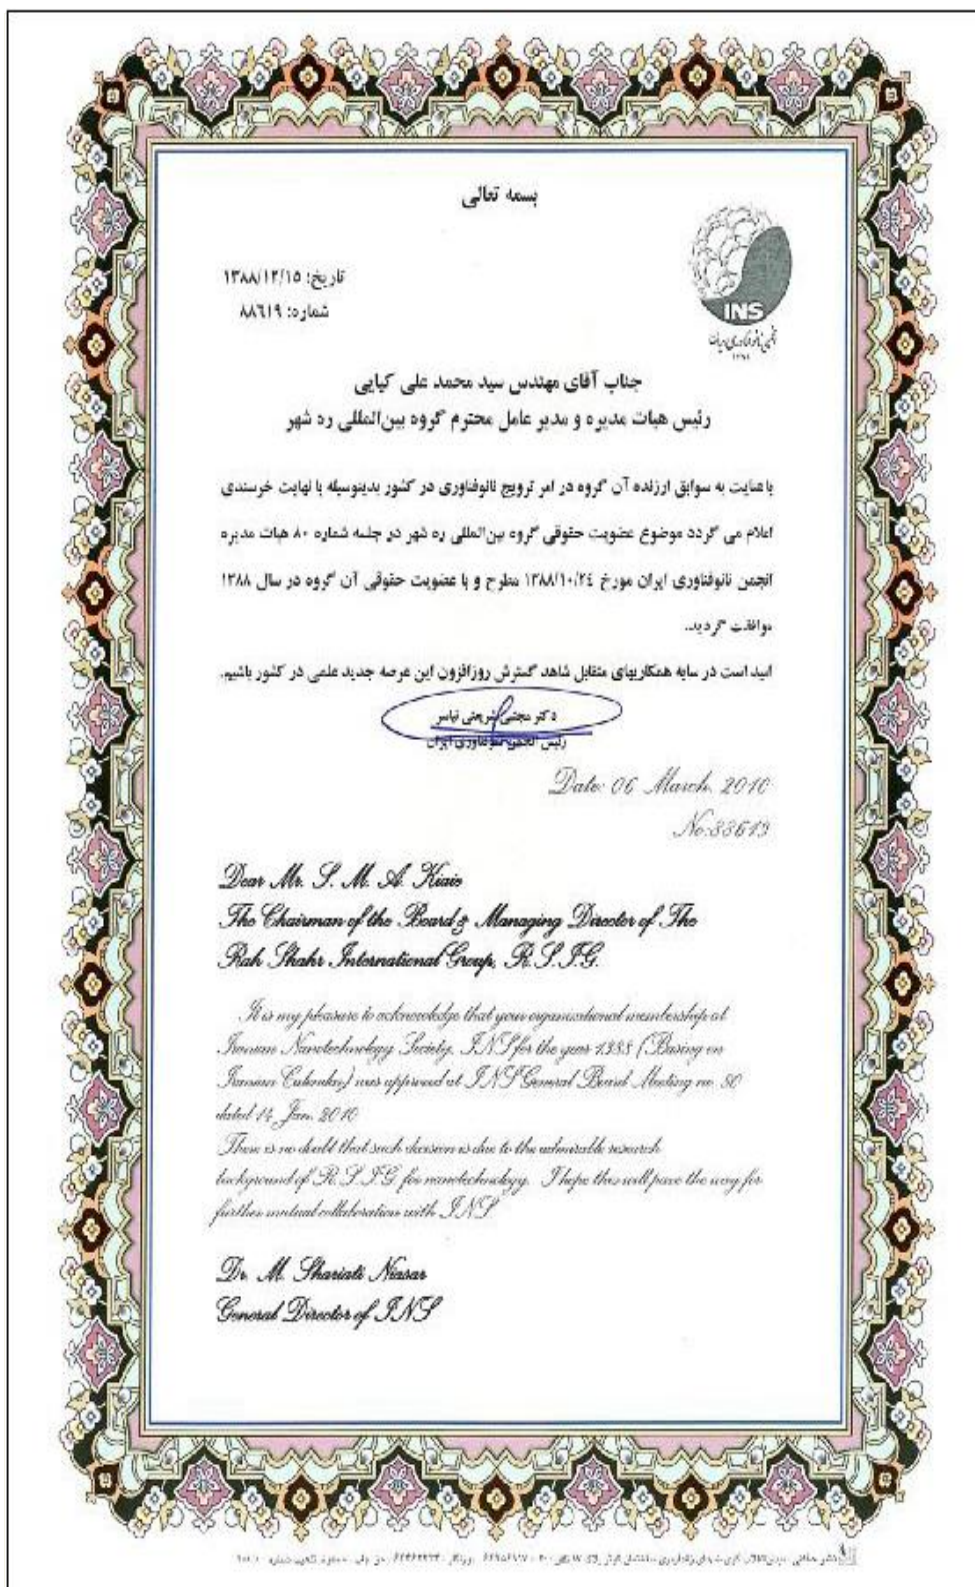 بسمه تعالی
INS
انجمن نانوفناوری ایران
تاریخ: ۱۳۸۸/۱۲/۱۵
شماره: ۸۸۶۱۹
جناب آقای مهندس سید محمد علی کیایی
رئیس هیات مدیره و مدیر عامل محترم گروه بین‌المللی ره شهر
با عنایت به سوابق ارزنده آن گروه در امر ترویج نانوفناوری در کشور بدینوسیله با نهایت خرسندی
اعلام می گردد موضوع عضویت حقوقی گروه بین‌المللی ره شهر در جلسه شماره ۸۰ هیات مدیره
انجمن نانوفناوری ایران مورخ ۱۳۸۸/۱۰/۲۴ مطرح و با عضویت حقوقی آن گروه در سال ۱۳۸۸
موافقت گردید.
امید است در سایه همکاریهای متقابل شاهد گسترش روزافزون این عرصه جدید علمی در کشور باشیم.
دکتر مجتبی شریعتی نیاسر
رئیس انجمن نانوفناوری ایران
Date: 06 March, 2010
No:88619
Dear Mr. S. M. A. Kiaie
The Chairman of the Board & Managing Director of The
Rah Shahr International Group, R.S.I.G.
It is my pleasure to acknowledge that your organizational membership at
Iranian Nanotechnology Society, INS for the year 1388 (Basing on
Iranian Calendar) was approved at INS General Board Meeting no. 80
dated 14 Jan. 2010
There is no doubt that such decision is due to the admirable research
background of R.S.I.G. for nanotechnology. I hope this will pave the way for
further mutual collaboration with INS
Dr. M. Shariati Niasar
General Director of INS